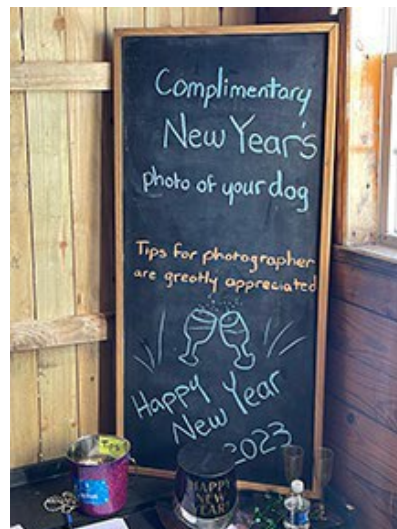 Complimentary
New Year's
photo of your dog
Tips for photographer
are greatly appreciated
Happy
New Year
2023
TIPS
HAPPY
NEW
YEAR